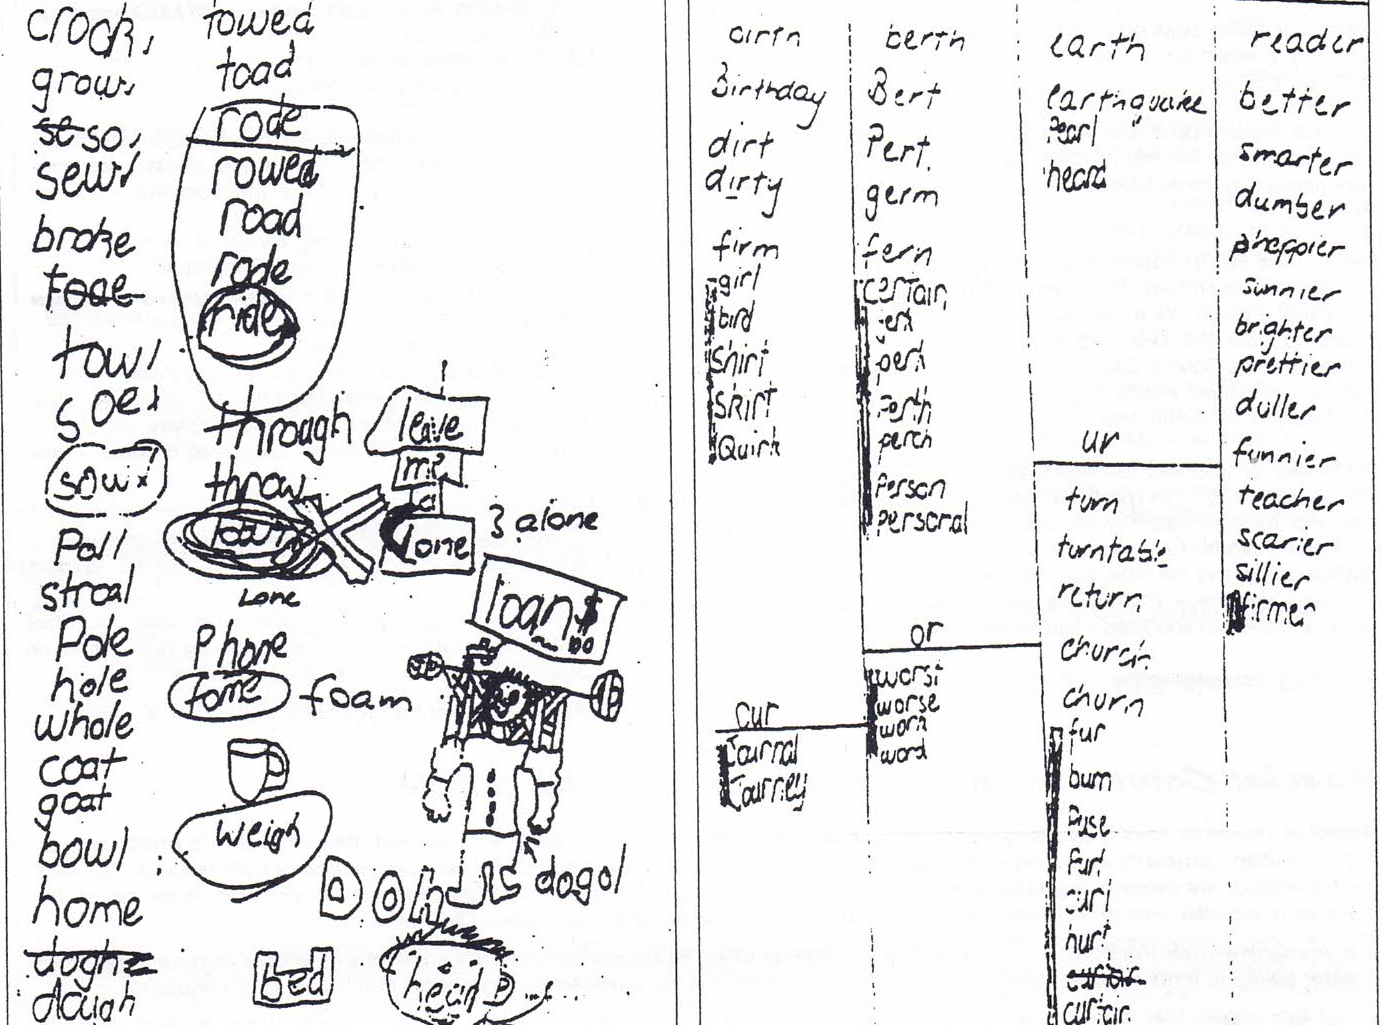 crock,
grow,
so,
sew
broke
tow
soe
sow
Poll
stroal
Pole
hole
whole
coat
goat
bowl
home
dough
towed
toad
rode
rowed
road
rode
ride
through
throw
Lone
Phone
fome
foam
weigh
bed
head
leave
me
a
lone
3 alone
loan$
dogo!
birth
Birthday
dirt
dirty
firm
girl
bird
Shirt
Skirt
Quirk
our
Journal
Journey
berth
Bert
Pert
germ
fern
certain
jerk
perk
Perth
perch
Person
Personal
or
worst
worse
work
word
earth
earthquake
Pearl
heard
ur
turn
turntable
return
church
churn
fur
burn
Purse
Furl
curl
hurt
reader
better
smarter
dumber
happier
sunnier
brighter
prettier
duller
funnier
teacher
scarier
sillier
firmer